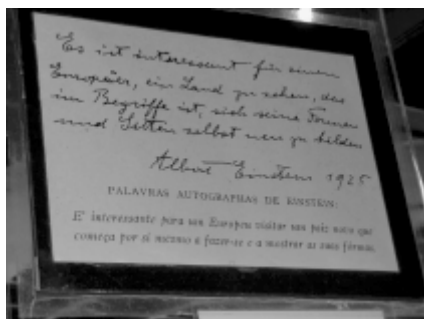 Es ist interessant für einen
Europäer, ein Land zu sehen, das
im Begriffe ist, sich seine Formen
und Sitten selbst neu zu bilden
Albert Einstein 1925
PALAVRAS AUTOGRAPHAS DE EINSTEIN:
E' interessante para um Europeu visitar um paiz novo que
começa por si mesmo a fazer-se e a mostrar as suas fórmas.